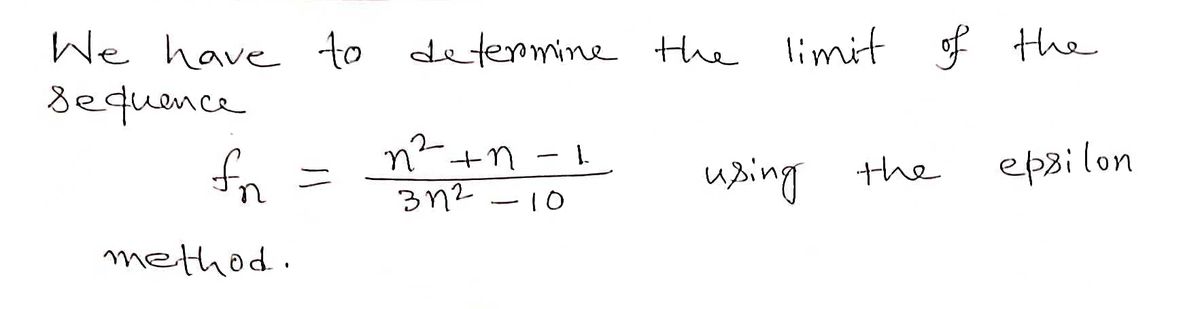 We have to determine the limit of the
sequence
fn = (n² + n - 1) / (3n² - 10) using the epsilon
method.